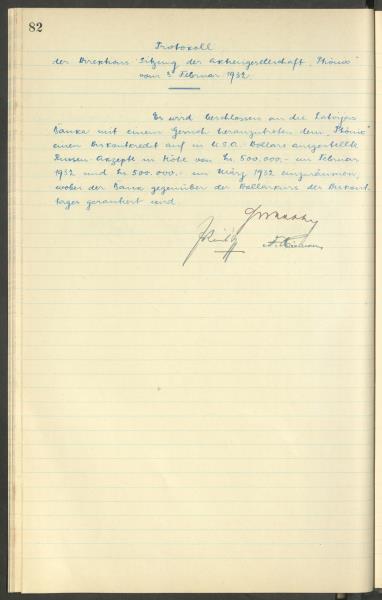 82
Protokoll
der Direktions Sitzung der Aktiengesellschaft "Phönix"
vom 2. Februar 1932
Es wird beschlossen an die Latvijas
Banka mit einem Gesuch heranzutreten dem "Phönix"
einen Diskontkredit auf in U.S.A. Dollars ausgestellte
Russen-Akzepte in Höhe von Ls. 500.000,- im Februar
1932 und Ls. 500.000.- im März 1932 einzuräumen,
wobei der Bank gegenüber der Dollarkurs der Diskont-
tage garantiert wird.